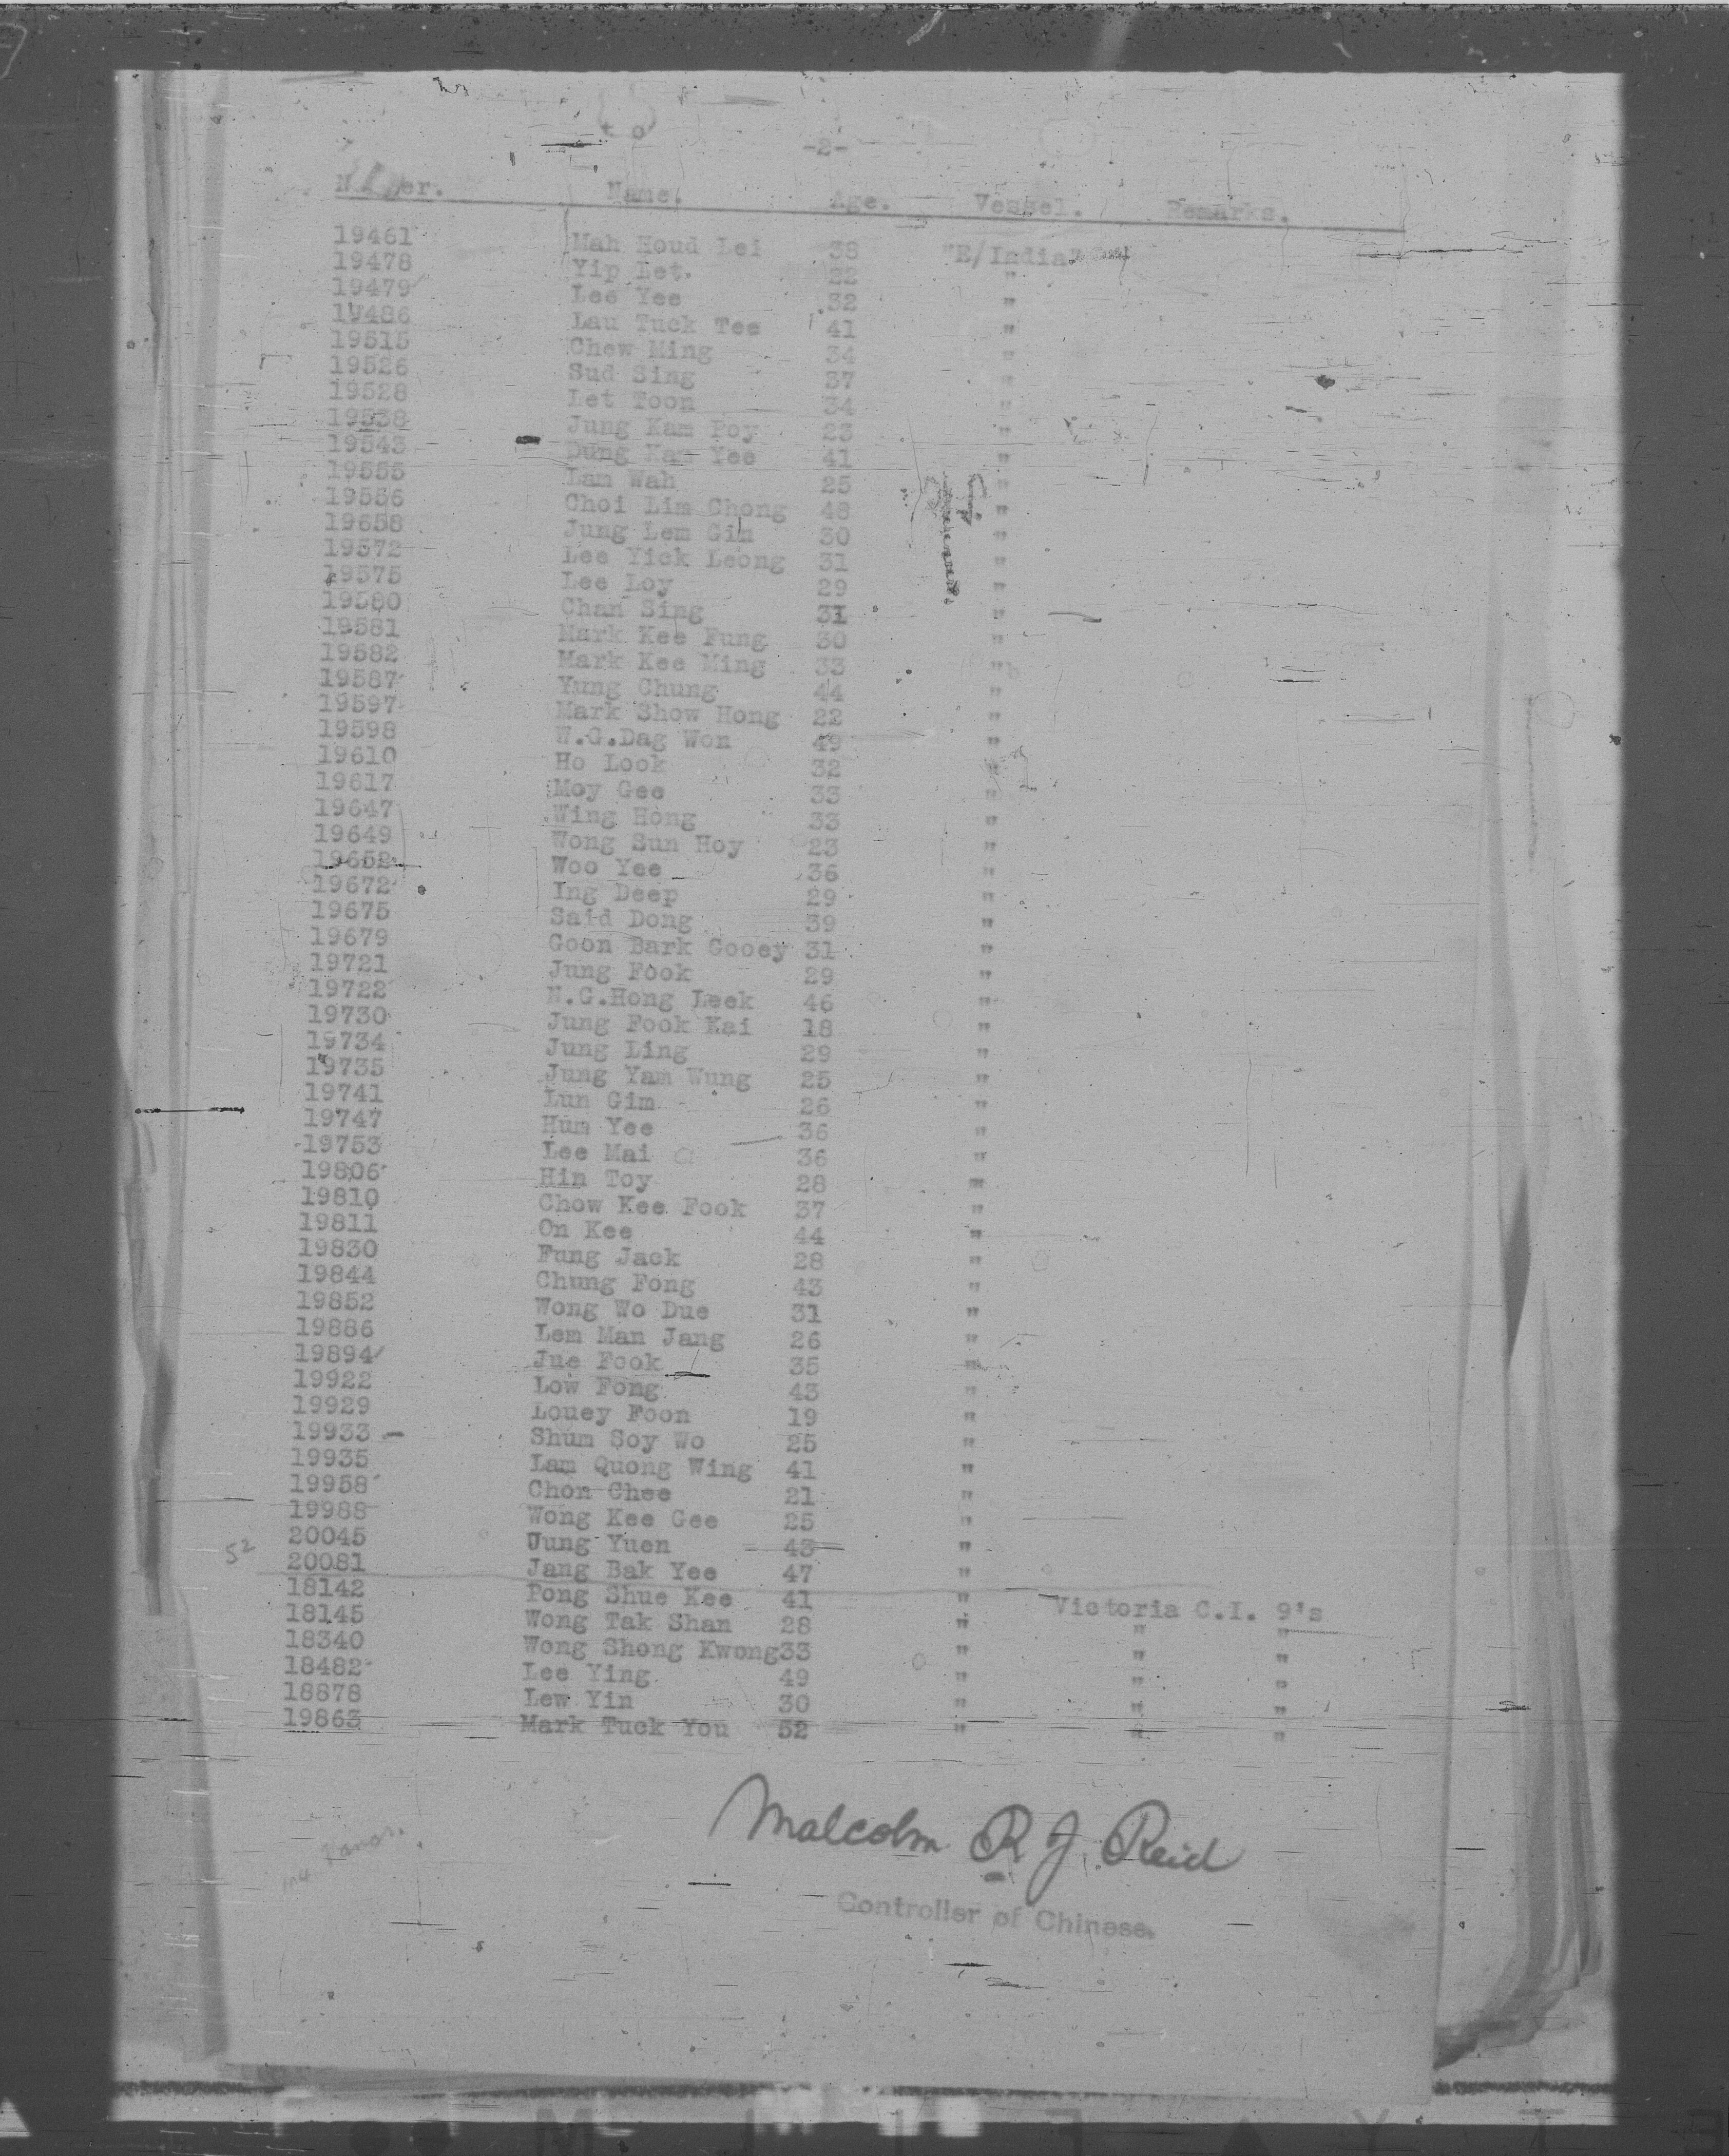 -2-
Name. Age. Vessel. Remarks.
19461 Mah Houd Lei 38 "E/India"
19478 Yip Let. 22 "
19479 Lee Yee 32 "
19486 Lau Tuck Tee 41 "
19515 Chew Ming 34 "
19526 Sud Sing 37 "
19528 Let Toon 34 "
19538 Jung Kam Poy 23 "
19543 Dung Kam Yee 41 "
19555 Lam Wah 25 "
19556 Choi Lim Chong 48 "
19658 Jung Lem Gim 30 "
19572 Lee Yick Leong 31 "
19575 Lee Loy 29 "
19580 Chan Sing 31 "
19581 Mark Kee Fung 30 "
19582 Mark Kee Ming 33 "
19587 Yung Chung 44 "
19597 Mark Show Hong 22 "
19598 W.G.Dag Won 49 "
19610 Ho Look 32 "
19617 Moy Gee 33 "
19647 Wing Hong 33 "
19649 Wong Sun Hoy 23 "
19652 Woo Yee 36 "
19672 Ing Deep 29 "
19675 Said Dong 39 "
19679 Goon Bark Gooey 31 "
19721 Jung Fook 29 "
19722 N.G.Hong Leek 46 "
19730 Jung Fook Kai 18 "
19734 Jung Ling 29 "
19735 Jung Yam Wung 25 "
19741 Lun Gim 26 "
19747 Hum Yee 36 "
19753 Lee Mai 36 "
19806 Hin Toy 28 "
19810 Chow Kee Fook 37 "
19811 On Kee 44 "
19830 Fung Jack 28 "
19844 Chung Fong 43 "
19852 Wong Wo Due 31 "
19886 Lem Man Jang 26 "
19894 Jue Fook 35 "
19922 Low Fong 43 "
19929 Louey Foon 19 "
19933 Shum Soy Wo 25 "
19935 Lam Quong Wing 41 "
19958 Chon Chee 21 "
19988 Wong Kee Gee 25 "
20045 Jung Yuen 43 "
52 20081 Jang Bak Yee 47 "
18142 Pong Shue Kee 41 " Victoria C.I. 9's
18145 Wong Tak Shan 28 " " "
18340 Wong Shong Kwong 33 " " "
18482 Lee Ying 49 " " "
18878 Lew Yin 30 " " "
19863 Mark Tuck You 52 " " "
Malcolm R J Reid
Controller of Chinese.